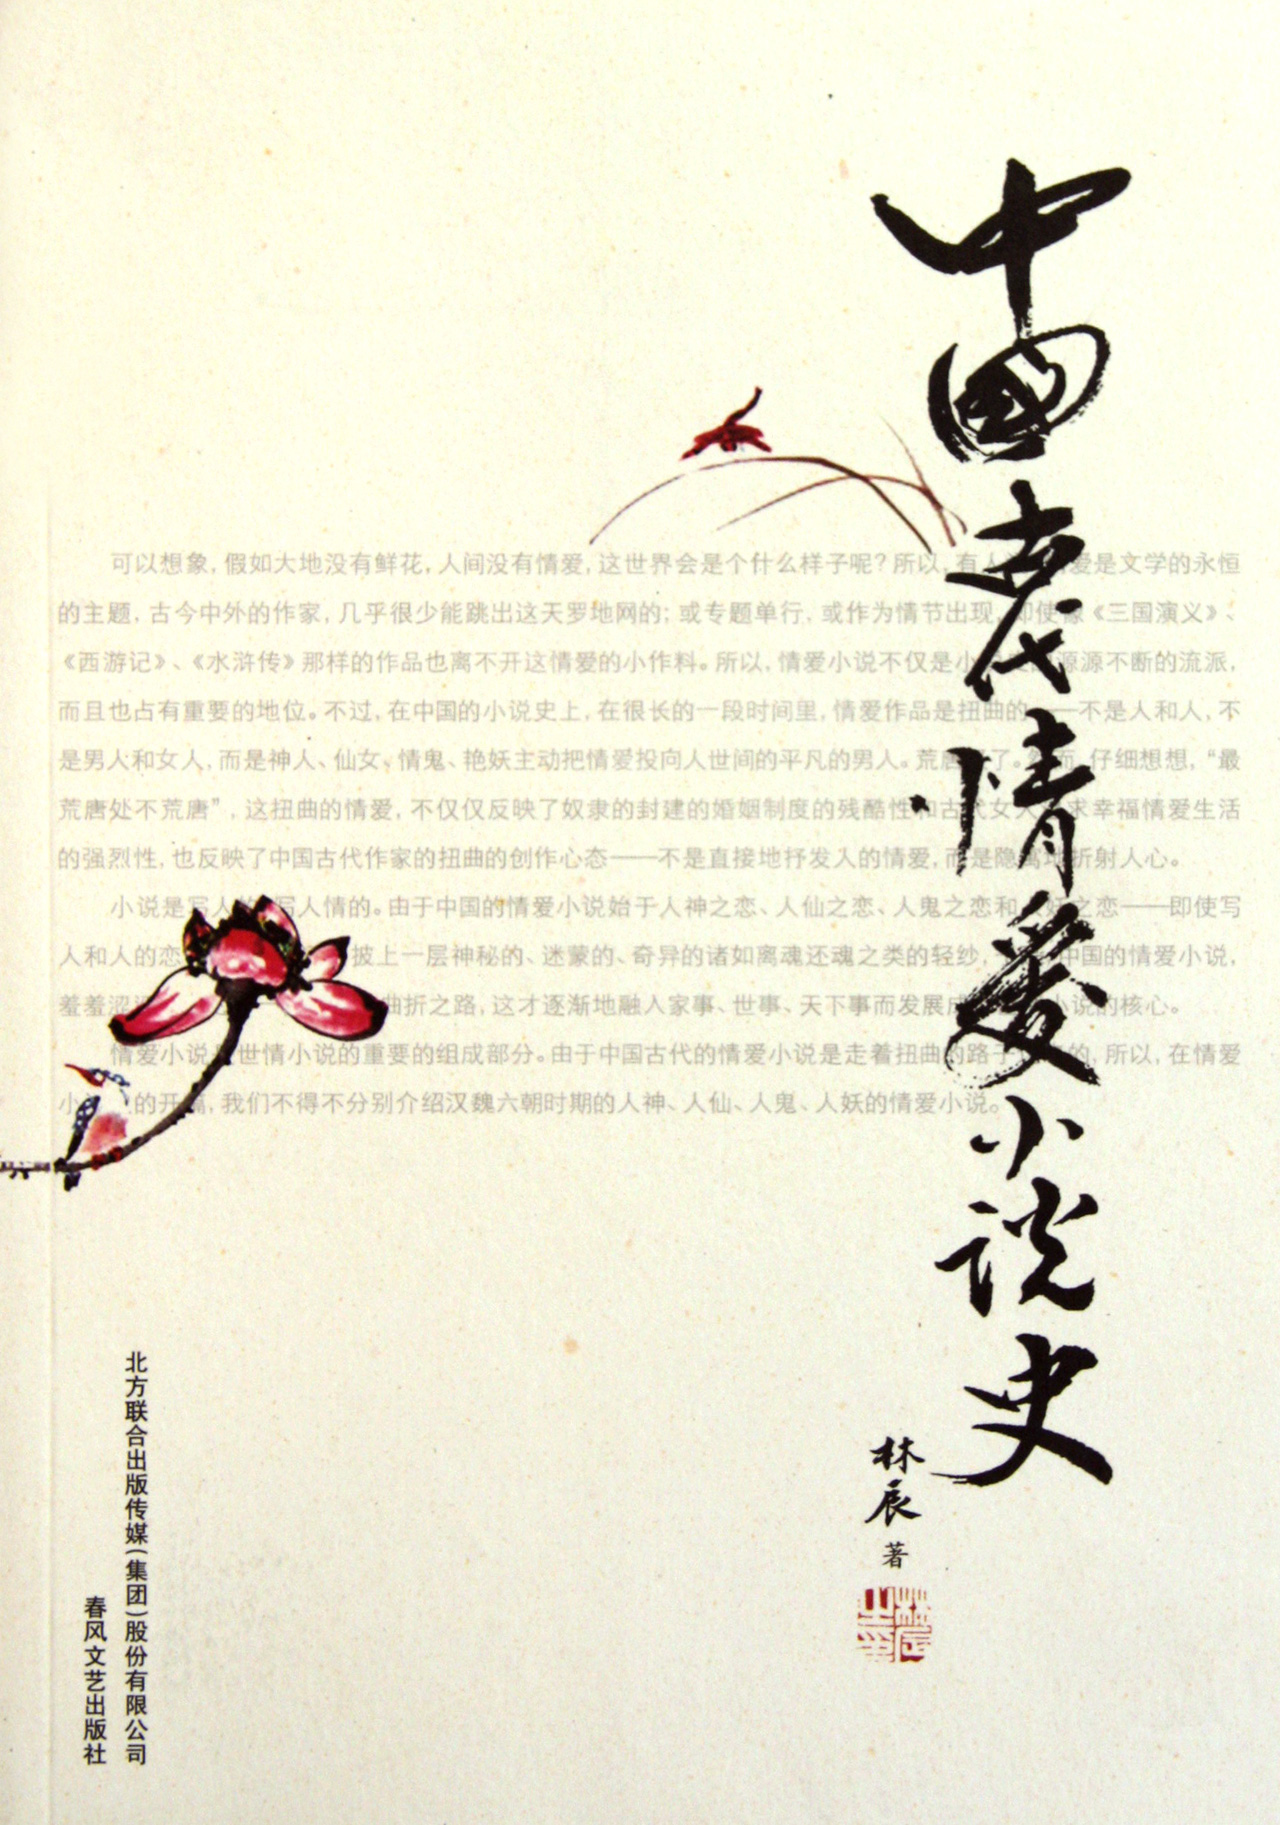 中国古代情爱小说史
林辰 著
可以想象，假如大地没有鲜花，人间没有情爱，这世界会是个什么样子呢？所以，有人 爱是文学的永恒
的主题，古今中外的作家，几乎很少能跳出这天罗地网的；或专题单行，或作为情节出现，即使像《三国演义》、
《西游记》、《水浒传》那样的作品也离不开这情爱的小作料。所以，情爱小说不仅是小 源源不断的流派，
而且也占有重要的地位。不过，在中国的小说史上，在很长的一段时间里，情爱作品是扭曲的——不是人和人，不
是男人和女人，而是神人、仙女、情鬼、艳妖主动把情爱投向人世间的平凡的男人。荒唐 了。 而，仔细想想，“最
荒唐处不荒唐”，这扭曲的情爱，不仅仅反映了奴隶的封建的婚姻制度的残酷性和古代女人 求幸福情爱生活
的强烈性，也反映了中国古代作家的扭曲的创作心态——不是直接地抒发人的情爱，而是隐 地折射人心。
小说是写人 写人情的。由于中国的情爱小说始于人神之恋、人仙之恋、人鬼之恋和人妖之恋——即使写
人和人的恋 披上一层神秘的、迷蒙的、奇异的诸如离魂还魂之类的轻纱， 中国的情爱小说，
羞羞涩 曲折之路，这才逐渐地融入家事、世事、天下事而发展成 小说的核心。
情爱小说 世情小说的重要的组成部分。由于中国古代的情爱小说是走着扭曲的路子 的，所以，在情爱
小 的开篇，我们不得不分别介绍汉魏六朝时期的人神、人仙、人鬼、人妖的情爱小说。
北方联合出版传媒（集团）股份有限公司
春风文艺出版社